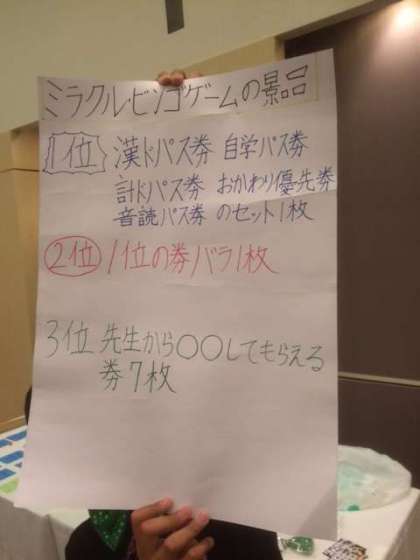 ミラクル・ビンゴゲームの景品
1位 漢ドパス券 自学パス券
計ドパス券 おかわり優先券
音読パス券 のセット1枚
2位 1位の券バラ1枚
3位 先生から○○してもらえる
券7枚